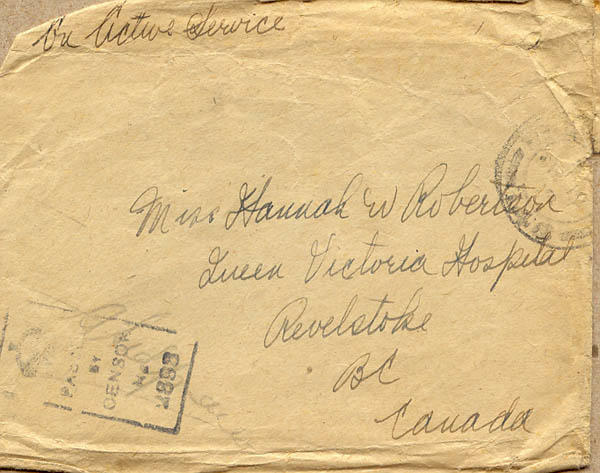 On Active Service
Miss Hannah W Robertson
Queen Victoria Hospital
Revelstoke
BC
Canada
PASSED
BY
CENSOR
No